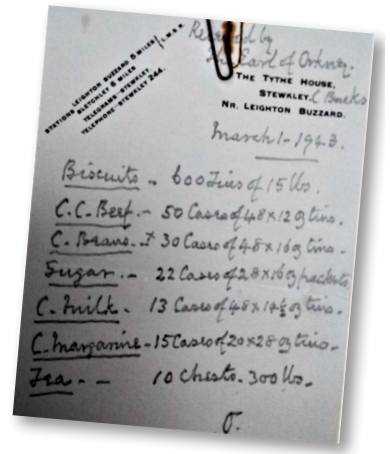 Received by
The Earl of Orkney.
STATIONS LEIGHTON BUZZARD 5 MILES
BLETCHLEY 6 MILES
L.M.S.R.
TELEGRAMS–STEWKLEY.
TELEPHONE–STEWKLEY 244.
THE TYTHE HOUSE,
STEWKLEY, Bucks
NR. LEIGHTON BUZZARD.
March 1 - 1943.
Biscuits - 600 Tins of 15 lbs.
C.C. Beef. - 50 Cases of 48 x 12 oz tins.
C. Beans. - 30 Cases of 48 x 16 oz tins.
Sugar. - 22 Cases of 28 x 16 oz packets
C. Milk. - 13 Cases of 48 x 14½ oz tins.
C. Margarine - 15 Cases of 20 x 28 oz tins.
Tea - - 10 Chests. 300 lbs.
O.